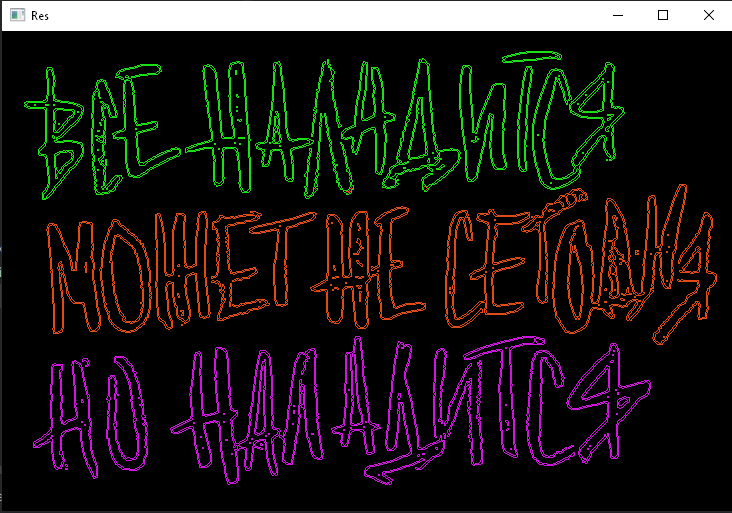 Res
ВСЕ НАЛАДИТСЯ
МОЖЕТ НЕ СЕГОДНЯ
НО НАЛАДИТСЯ